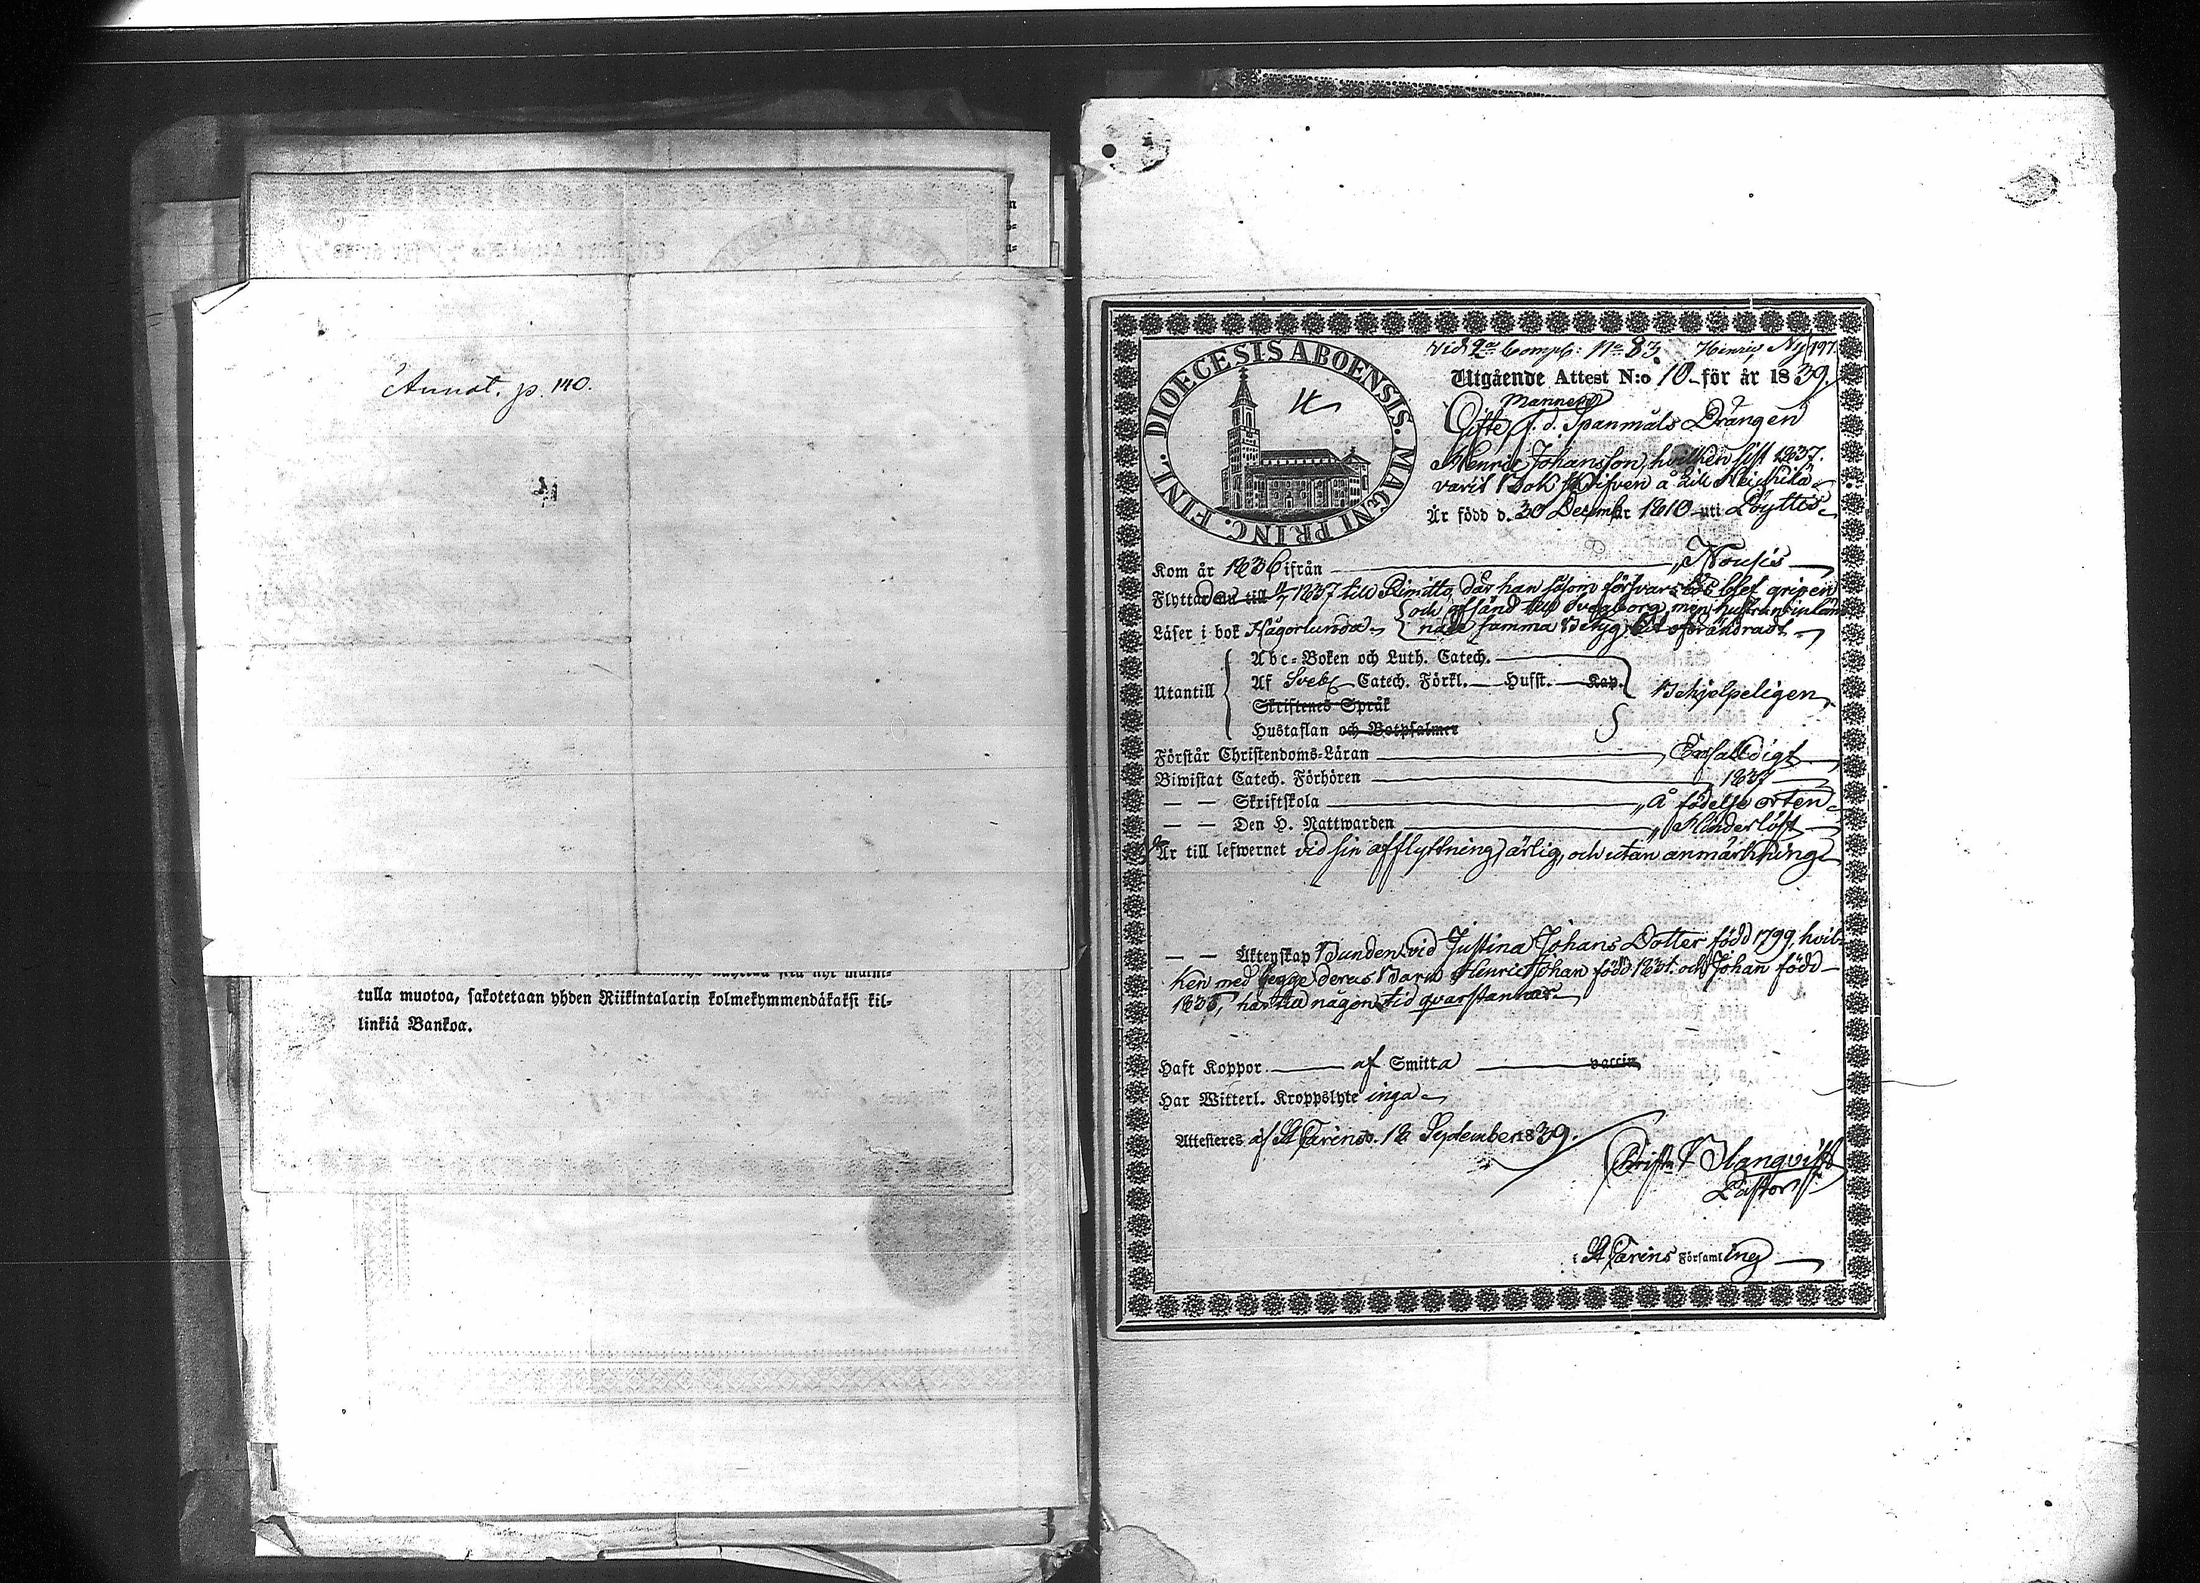 Annot. p. 140.
tulla muotoa, sakotetaan yhden Riikintalarin kolmekymmendäkaksi kil-
linkiä Bankoa.
DIOECESIS ABOENSIS. MAGNI PRINC. FINL.
Vid 2:a Comp: No 83. Henric Ny 197.
Utgående Attest N:o 10 för år 1839.
Mannen
Gifte, f. d. Spanmåls Drängen
Henric Johansson, hvilken sist 1837.
varit Bokskrifven å Lill Heickilä
Är född d. 30 December 1810 uti Löyttis
Kom år 1836 ifrån Nousis
Flyttade 1837 till Rimitto, där han såsom försvarslös blef gripen
och afsänd till Sveaborg, men hustrun
Läser i bok Någorlunda samma Betyg oförändradt
Abc-Boken och Luth. Catech.
Utantill Af Sveb. Catech. Förkl. Husst. Kap. Behjelpeligen
Skriftenes Språk
Hustaflan och Botpsalmer
Förstår Christendoms-Läran Enfalldigt
Biwistat Catech. Förhören 1837
— — Skriftskola å födelse orten
— — Den H. Nattwarden Händerlöst
Är till lefwernet vid sin afflyttning, ärlig, och utan anmärkning
— — Äktenskap Bunden vid Justina Johans Dotter född 1799, hvil-
ken med begge deras Barn Henric Johan född 1831. och Johan född
1835, har till någon tid qvarstannat
Haft Koppor af Smitta vaccin.
Har Witterl. Kroppslyte inga
Attesteres af St Carins d. 12 September 1839.
Christn Blanqvist
Pastor
i St Carins Församling